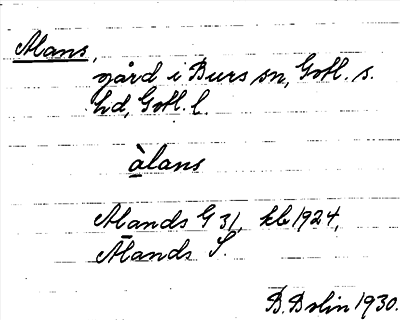 Alans,
gård i Burs sn, Gotl. s.
hd, Gotl. l.
àlans
Alands G 31, kb 1924,
Ålands S.
B. Bolin 1930.